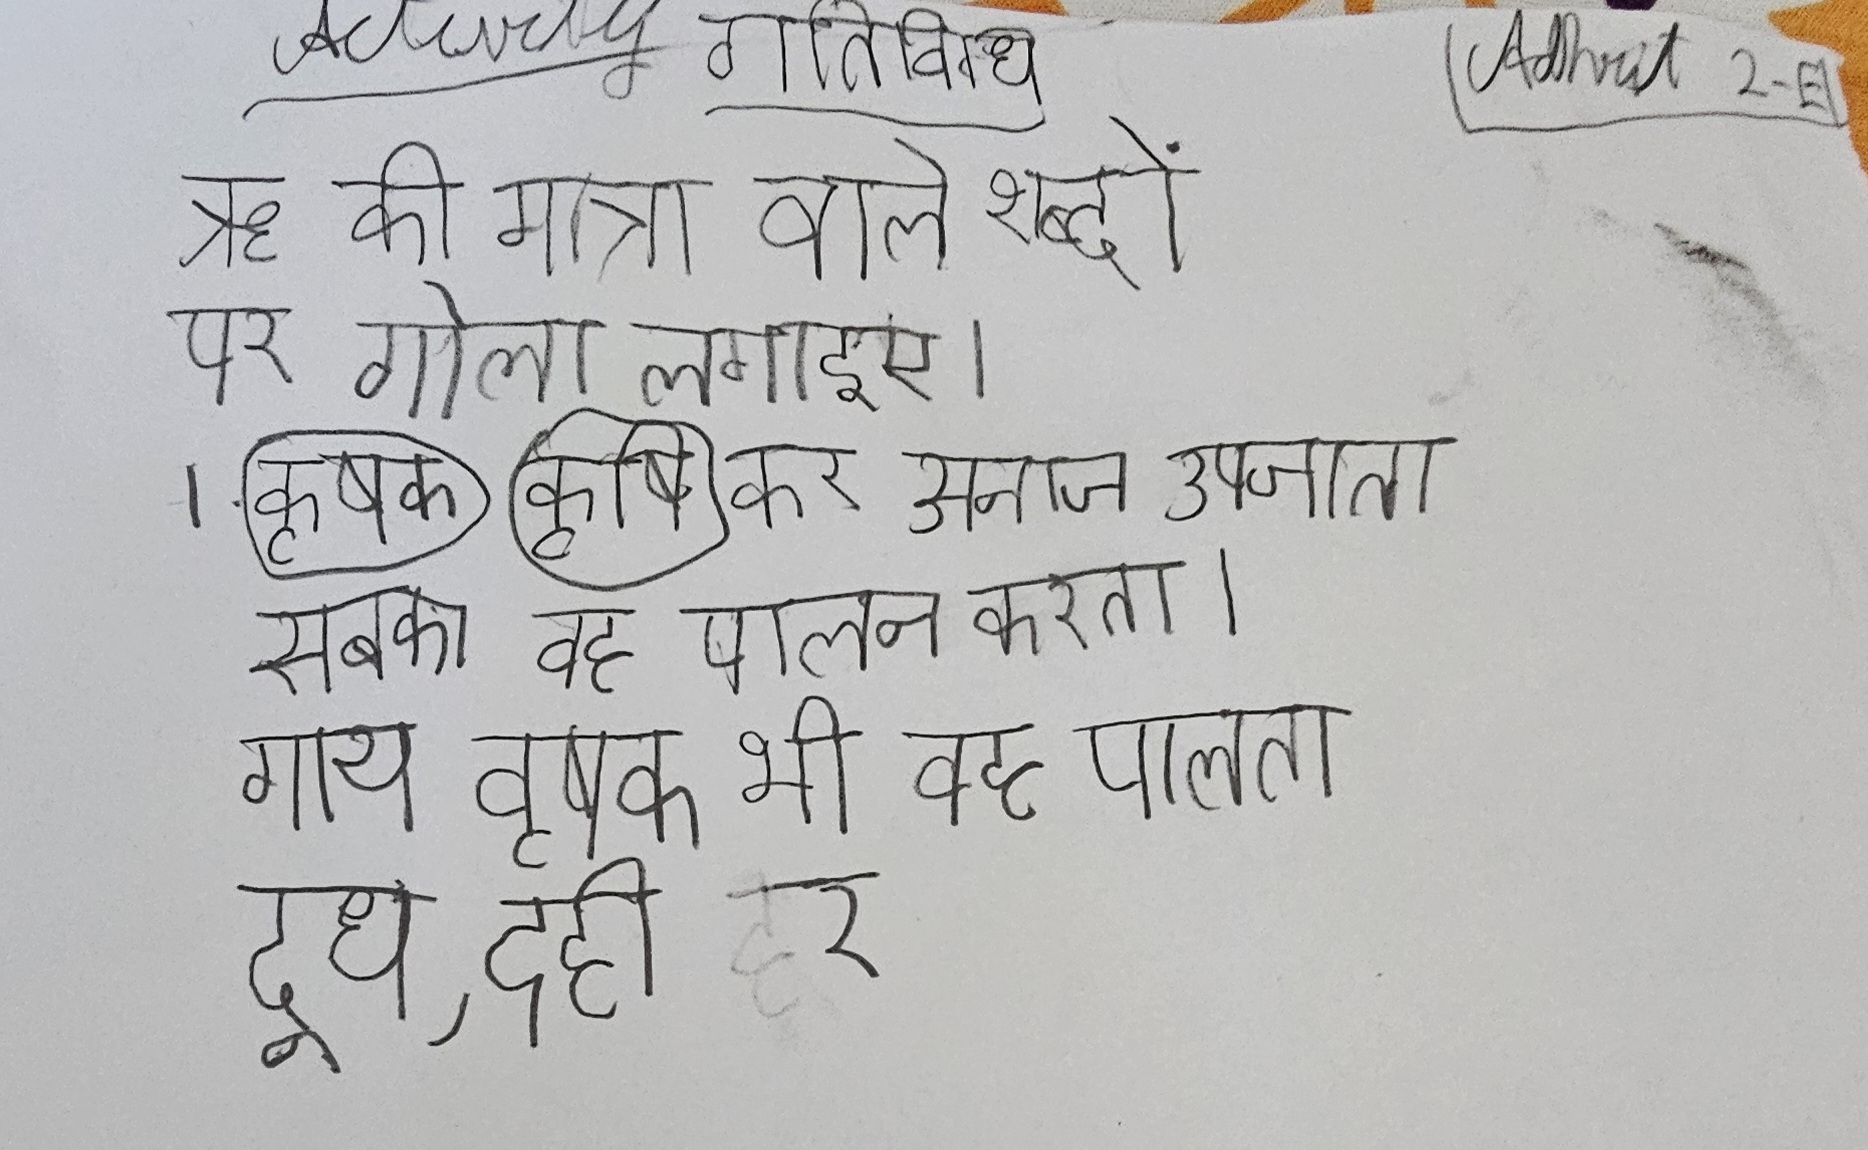 Activity गतिविधि Adhrit 2-E
ऋ की मात्रा वाले शब्दों
पर गोला लगाइए।
1. कृषक कृषि कर अनाज उपजाता
सबका वह पालन करता।
गाय वृषक भी वह पालता
दूध, दही र